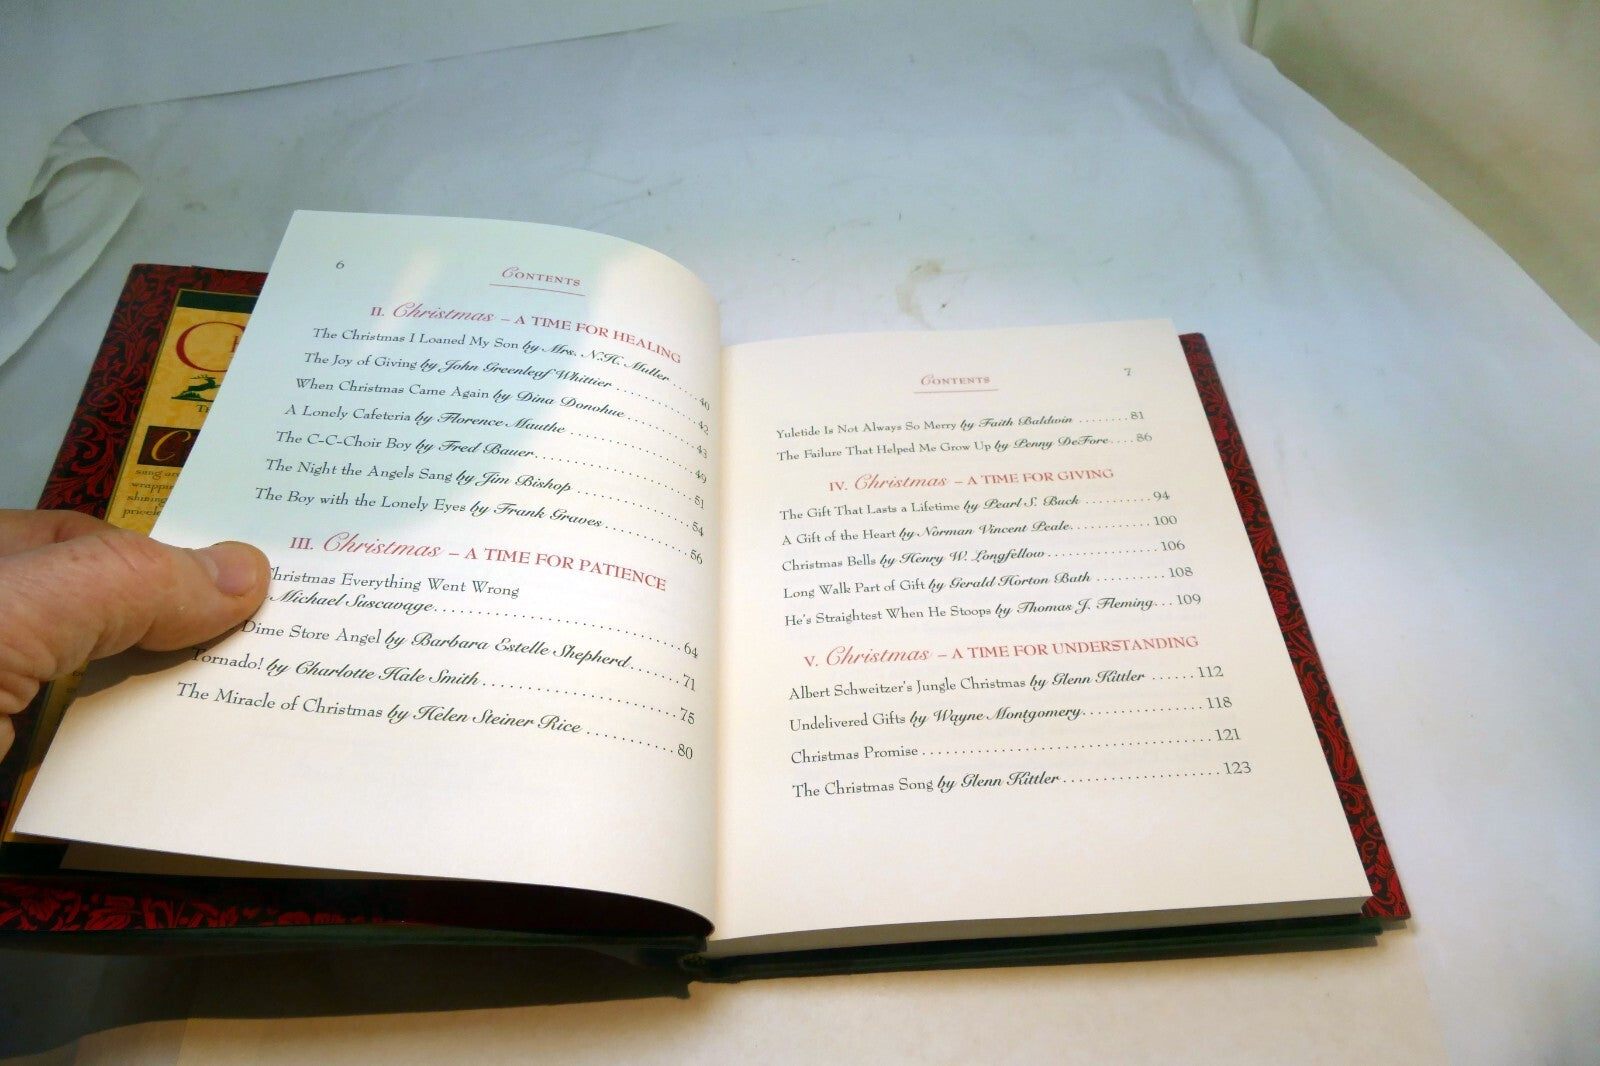 6
Contents
II. Christmas – A TIME FOR HEALING
The Christmas I Loaned My Son by Mrs. N.H. Muller ..... 40
The Joy of Giving by John Greenleaf Whittier ............ 42
When Christmas Came Again by Dina Donohue ........... 43
A Lonely Cafeteria by Florence Mauthe .................. 49
The C-C-Choir Boy by Fred Bauer...................... 51
The Night the Angels Sang by Jim Bishop ............... 54
The Boy with the Lonely Eyes by Frank Graves............ 56
III. Christmas – A TIME FOR PATIENCE
Christmas Everything Went Wrong
Michael Suscavage............................... 64
Dime Store Angel by Barbara Estelle Shepherd....... 71
Tornado! by Charlotte Hale Smith.................... 75
The Miracle of Christmas by Helen Steiner Rice ........... 80
Contents
7
Yuletide Is Not Always So Merry by Faith Baldwin ........ 81
The Failure That Helped Me Grow Up by Penny DeFore.... 86
IV. Christmas – A TIME FOR GIVING
The Gift That Lasts a Lifetime by Pearl S. Buck .......... 94
A Gift of the Heart by Norman Vincent Peale............ 100
Christmas Bells by Henry W. Longfellow ................ 106
Long Walk Part of Gift by Gerald Horton Bath .......... 108
He's Straightest When He Stoops by Thomas J. Fleming... 109
V. Christmas – A TIME FOR UNDERSTANDING
Albert Schweitzer's Jungle Christmas by Glenn Kittler ...... 112
Undelivered Gifts by Wayne Montgomery................. 118
Christmas Promise ..................................... 121
The Christmas Song by Glenn Kittler .................... 123